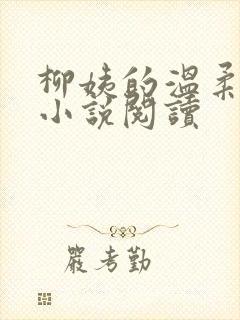 柳姨的温柔
小說閱讀
嚴考勤